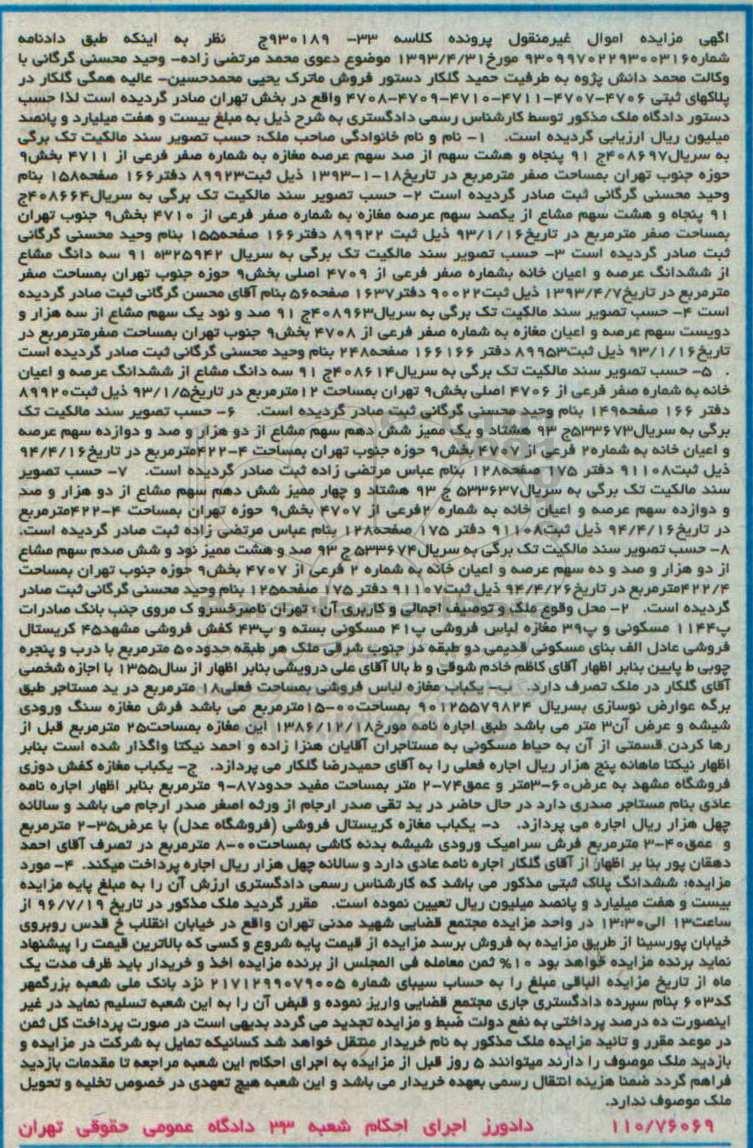 اگهی مزایده اموال غیرمنقول پرونده کلاسه ۳۳- ۹۳۰۱۸۹ج نظر به اینکه طبق دادنامه
شماره۹۳۰۹۹۷۰۲۲۹۳۰۰۳۱۶ مورخ۱۳۹۳/۴/۳۱ موضوع دعوی محمد مرتضی زاده- وحید محسنی گرگانی با
وکالت محمد دانش پژوه به طرفیت حمید گلکار دستور فروش ماترک یحیی محمدحسین- عالیه همگی گلکار در
پلاکهای ثبتی ۴۷۰۶-۴۷۰۷-۴۷۱۱-۴۷۱۰-۴۷۰۹-۴۷۰۸ واقع در بخش تهران صادر گردیده است لذا حسب
دستور دادگاه ملک مذکور توسط کارشناس رسمی دادگستری به شرح ذیل به مبلغ بیست و هفت میلیارد و پانصد
میلیون ریال ارزیابی گردیده است. ۱- نام و نام خانوادگی صاحب ملک: حسب تصویر سند مالکیت تک برگی
به سریال۴۰۸۶۹۷ج ۹۱ پنجاه و هشت سهم از صد سهم عرصه مغازه به شماره صفر فرعی از ۴۷۱۱ بخش۹
حوزه جنوب تهران بمساحت صفر مترمربع در تاریخ۱۸-۱-۱۳۹۳ ذیل ثبت۸۹۹۲۳ دفتر۱۶۶ صفحه۱۵۸ بنام
وحید محسنی گرگانی ثبت صادر گردیده است ۲- حسب تصویر سند مالکیت تک برگی به سریال۴۰۸۶۶۴ج
۹۱ پنجاه و هشت سهم مشاع از یکصد سهم عرصه مغازه به شماره صفر فرعی از ۴۷۱۰ بخش۹ جنوب تهران
بمساحت صفر مترمربع در تاریخ۹۳/۱/۱۶ ذیل ثبت ۸۹۹۲۲ دفتر۱۶۶ صفحه۱۵۵ بنام وحید محسنی گرگانی
ثبت صادر گردیده است ۳- حسب تصویر سند مالکیت تک برگی به سریال ۳۲۵۹۴۲ه ۹۱ سه دانگ مشاع
از ششدانگ عرصه و اعیان خانه بشماره صفر فرعی از ۴۷۰۹ اصلی بخش۹ حوزه جنوب تهران بمساحت صفر
مترمربع در تاریخ۱۳۹۳/۴/۷ ذیل ثبت۹۰۰۲۲ دفتر۱۶۳۷ صفحه۵۶ بنام آقای محسن گرگانی ثبت صادر گردیده
است ۴- حسب تصویر سند مالکیت تک برگی به سریال۴۰۸۹۶۳ج ۹۱ صد و نود یک سهم مشاع از سه هزار و
دویست سهم عرصه و اعیان مغازه به شماره صفر فرعی از ۴۷۰۸ بخش۹ جنوب تهران بمساحت صفرمترمربع در
تاریخ۹۳/۱/۱۶ ذیل ثبت۸۹۹۵۳ دفتر ۱۶۶۱۶۶ صفحه۲۴۸ بنام وحید محسنی گرگانی ثبت صادر گردیده است
. ۵- حسب تصویر سند مالکیت تک برگی به سریال۴۰۸۶۱۴ج ۹۱ سه دانگ مشاع از ششدانگ عرصه و اعیان
خانه به شماره صفر فرعی از ۴۷۰۶ اصلی بخش۹ تهران بمساحت ۱۲مترمربع در تاریخ۹۳/۱/۵ ذیل ثبت۸۹۹۲۰
دفتر ۱۶۶ صفحه۱۴۹ بنام وحید محسنی گرگانی ثبت صادر گردیده است. ۶- حسب تصویر سند مالکیت تک
برگی به سریال۵۳۳۶۷۳ج ۹۳ هشتاد و یک ممیز شش دهم سهم مشاع از دو هزار و صد و دوازده سهم عرصه
و اعیان خانه به شماره۲ فرعی از ۴۷۰۷ بخش۹ حوزه جنوب تهران بمساحت ۴-۴۲۲مترمربع در تاریخ۹۴/۴/۱۶
ذیل ثبت۹۱۱۰۸ دفتر ۱۷۵ صفحه۱۲۸ بنام عباس مرتضی زاده ثبت صادر گردیده است. ۷- حسب تصویر
سند مالکیت تک برگی به سریال۵۳۳۶۳۷ ج ۹۳ هشتاد و چهار ممیز شش دهم سهم مشاع از دو هزار و صد
و دوازده سهم عرصه و اعیان خانه به شماره ۲فرعی از ۴۷۰۷ بخش۹ حوزه تهران بمساحت ۴-۴۲۲مترمربع
در تاریخ۹۴/۴/۱۶ ذیل ثبت۹۱۱۰۸ دفتر ۱۷۵ صفحه۱۲۸ بنام عباس مرتضی زاده ثبت صادر گردیده است.
۸- حسب تصویر سند مالکیت تک برگی به سریال۵۳۳۶۷۴ ج ۹۳ صد و هشت ممیز نود و شش صدم سهم مشاع
از دو هزار و صد و ده سهم عرصه و اعیان خانه به شماره ۲ فرعی از ۴۷۰۷ بخش۹ حوزه جنوب تهران بمساحت
۴۲۲/۴مترمربع در تاریخ۹۴/۴/۲۶ ذیل ثبت۹۱۱۰۷ دفتر ۱۷۵ صفحه۱۲۵ بنام وحید محسنی گرگانی ثبت صادر
گردیده است. ۲- محل وقوع ملک و توصیف اجمالی و کاربری آن : تهران ناصرخسرو ک مروی جنب بانک صادرات
پ۱۱۴۴ مسکونی و پ۳۹ مغازه لباس فروشی پ۴۱ مسکونی بسته و پ۴۳ کفش فروشی مشهد۴۵ کریستال
فروشی عادل الف بنای مسکونی قدیمی دو طبقه در جنوب شرقی ملک هر طبقه حدود۵۰ مترمربع با درب و پنجره
چوبی ط پایین بنابر اظهار آقای کاظم خادم شوقی و ط بالا آقای علی درویشی بنابر اظهار از سال۱۳۵۵ با اجازه شخصی
آقای گلکار در ملک تصرف دارد. ب- یکباب مغازه لباس فروشی بمساحت فعلی۱۸ مترمربع در ید مستاجر طبق
برگه عوارض نوسازی بسریال ۹۰۱۲۵۵۷۹۸۲۴ بمساحت۰۰-۱۵مترمربع می باشد فرش مغازه سنگ ورودی
شیشه و عرض آن۳ متر می باشد طبق اجاره نامه مورخ۱۳۸۶/۱۲/۱۸ این مغازه بمساحت۲۵ مترمربع قبل از
رها کردن قسمتی از آن به حیاط مسکونی به مستاجران آقایان هنزا زاده و احمد نیکتا واگذار شده است بنابر
اظهار نیکتا ماهانه پنج هزار ریال اجاره فعلی را به آقای حمیدرضا گلکار می پردازد. ج- یکباب مغازه کفش دوزی
فروشگاه مشهد به عرض۶۰-۳متر و عمق۷۴-۲ متر بمساحت مفید حدود۸۷-۹ مترمربع بنابر اظهار اجاره نامه
عادی بنام مستاجر صدری دارد در حال حاضر در ید تقی صدر ارجام از ورثه اصغر صدر ارجام می باشد و سالانه
چهل هزار ریال اجاره می پردازد. د- یکباب مغازه کریستال فروشی (فروشگاه عدل) با عرض۳۵-۲ مترمربع
و عمق۴۰-۳ مترمربع فرش سرامیک ورودی شیشه بدنه کاشی بمساحت۰۰-۸ مترمربع در تصرف آقای احمد
دهقان پور بنا بر اظهار از آقای گلکار اجاره نامه عادی دارد و سالانه چهل هزار ریال اجاره پرداخت میکند. ۴- مورد
مزایده: ششدانگ پلاک ثبتی مذکور می باشد که کارشناس رسمی دادگستری ارزش آن را به مبلغ پایه مزایده
بیست و هفت میلیارد و پانصد میلیون ریال تعیین نموده است. مقرر گردید ملک مذکور در تاریخ ۹۶/۷/۱۹ از
ساعت۱۳ الی۱۳:۳۰ در واحد مزایده مجتمع قضایی شهید مدنی تهران واقع در خیابان انقلاب خ قدس روبروی
خیابان پورسینا از طریق مزایده به فروش برسد مزایده از قیمت پایه شروع و کسی که بالاترین قیمت را پیشنهاد
نماید برنده مزایده خواهد بود ۱۰% ثمن معامله فی المجلس از برنده مزایده اخذ و خریدار باید ظرف مدت یک
ماه از تاریخ مزایده الباقی مبلغ را به حساب سیبای شماره ۲۱۷۱۲۹۹۰۷۹۰۰۵ نزد بانک ملی شعبه بزرگمهر
کد۶۰۳ بنام سپرده دادگستری جاری مجتمع قضایی واریز نموده و قبض آن را به این شعبه تسلیم نماید در غیر
اینصورت ده درصد پرداختی به نفع دولت ضبط و مزایده تجدید می گردد بدیهی است در صورت پرداخت کل ثمن
در موعد مقرر و تائید مزایده ملک مذکور به نام خریدار منتقل خواهد شد کسانیکه تمایل به شرکت در مزایده و
بازدید ملک موصوف را دارند میتوانند ۵ روز قبل از مزایده به اجرای احکام این شعبه مراجعه تا مقدمات بازدید
فراهم گردد ضمنا هزینه انتقال رسمی بعهده خریدار می باشد و این شعبه هیچ تعهدی در خصوص تخلیه و تحویل
ملک موصوف ندارد.
۱۱۰/۷۶۰۶۹ دادورز اجرای احکام شعبه ۳۳ دادگاه عمومی حقوقی تهران